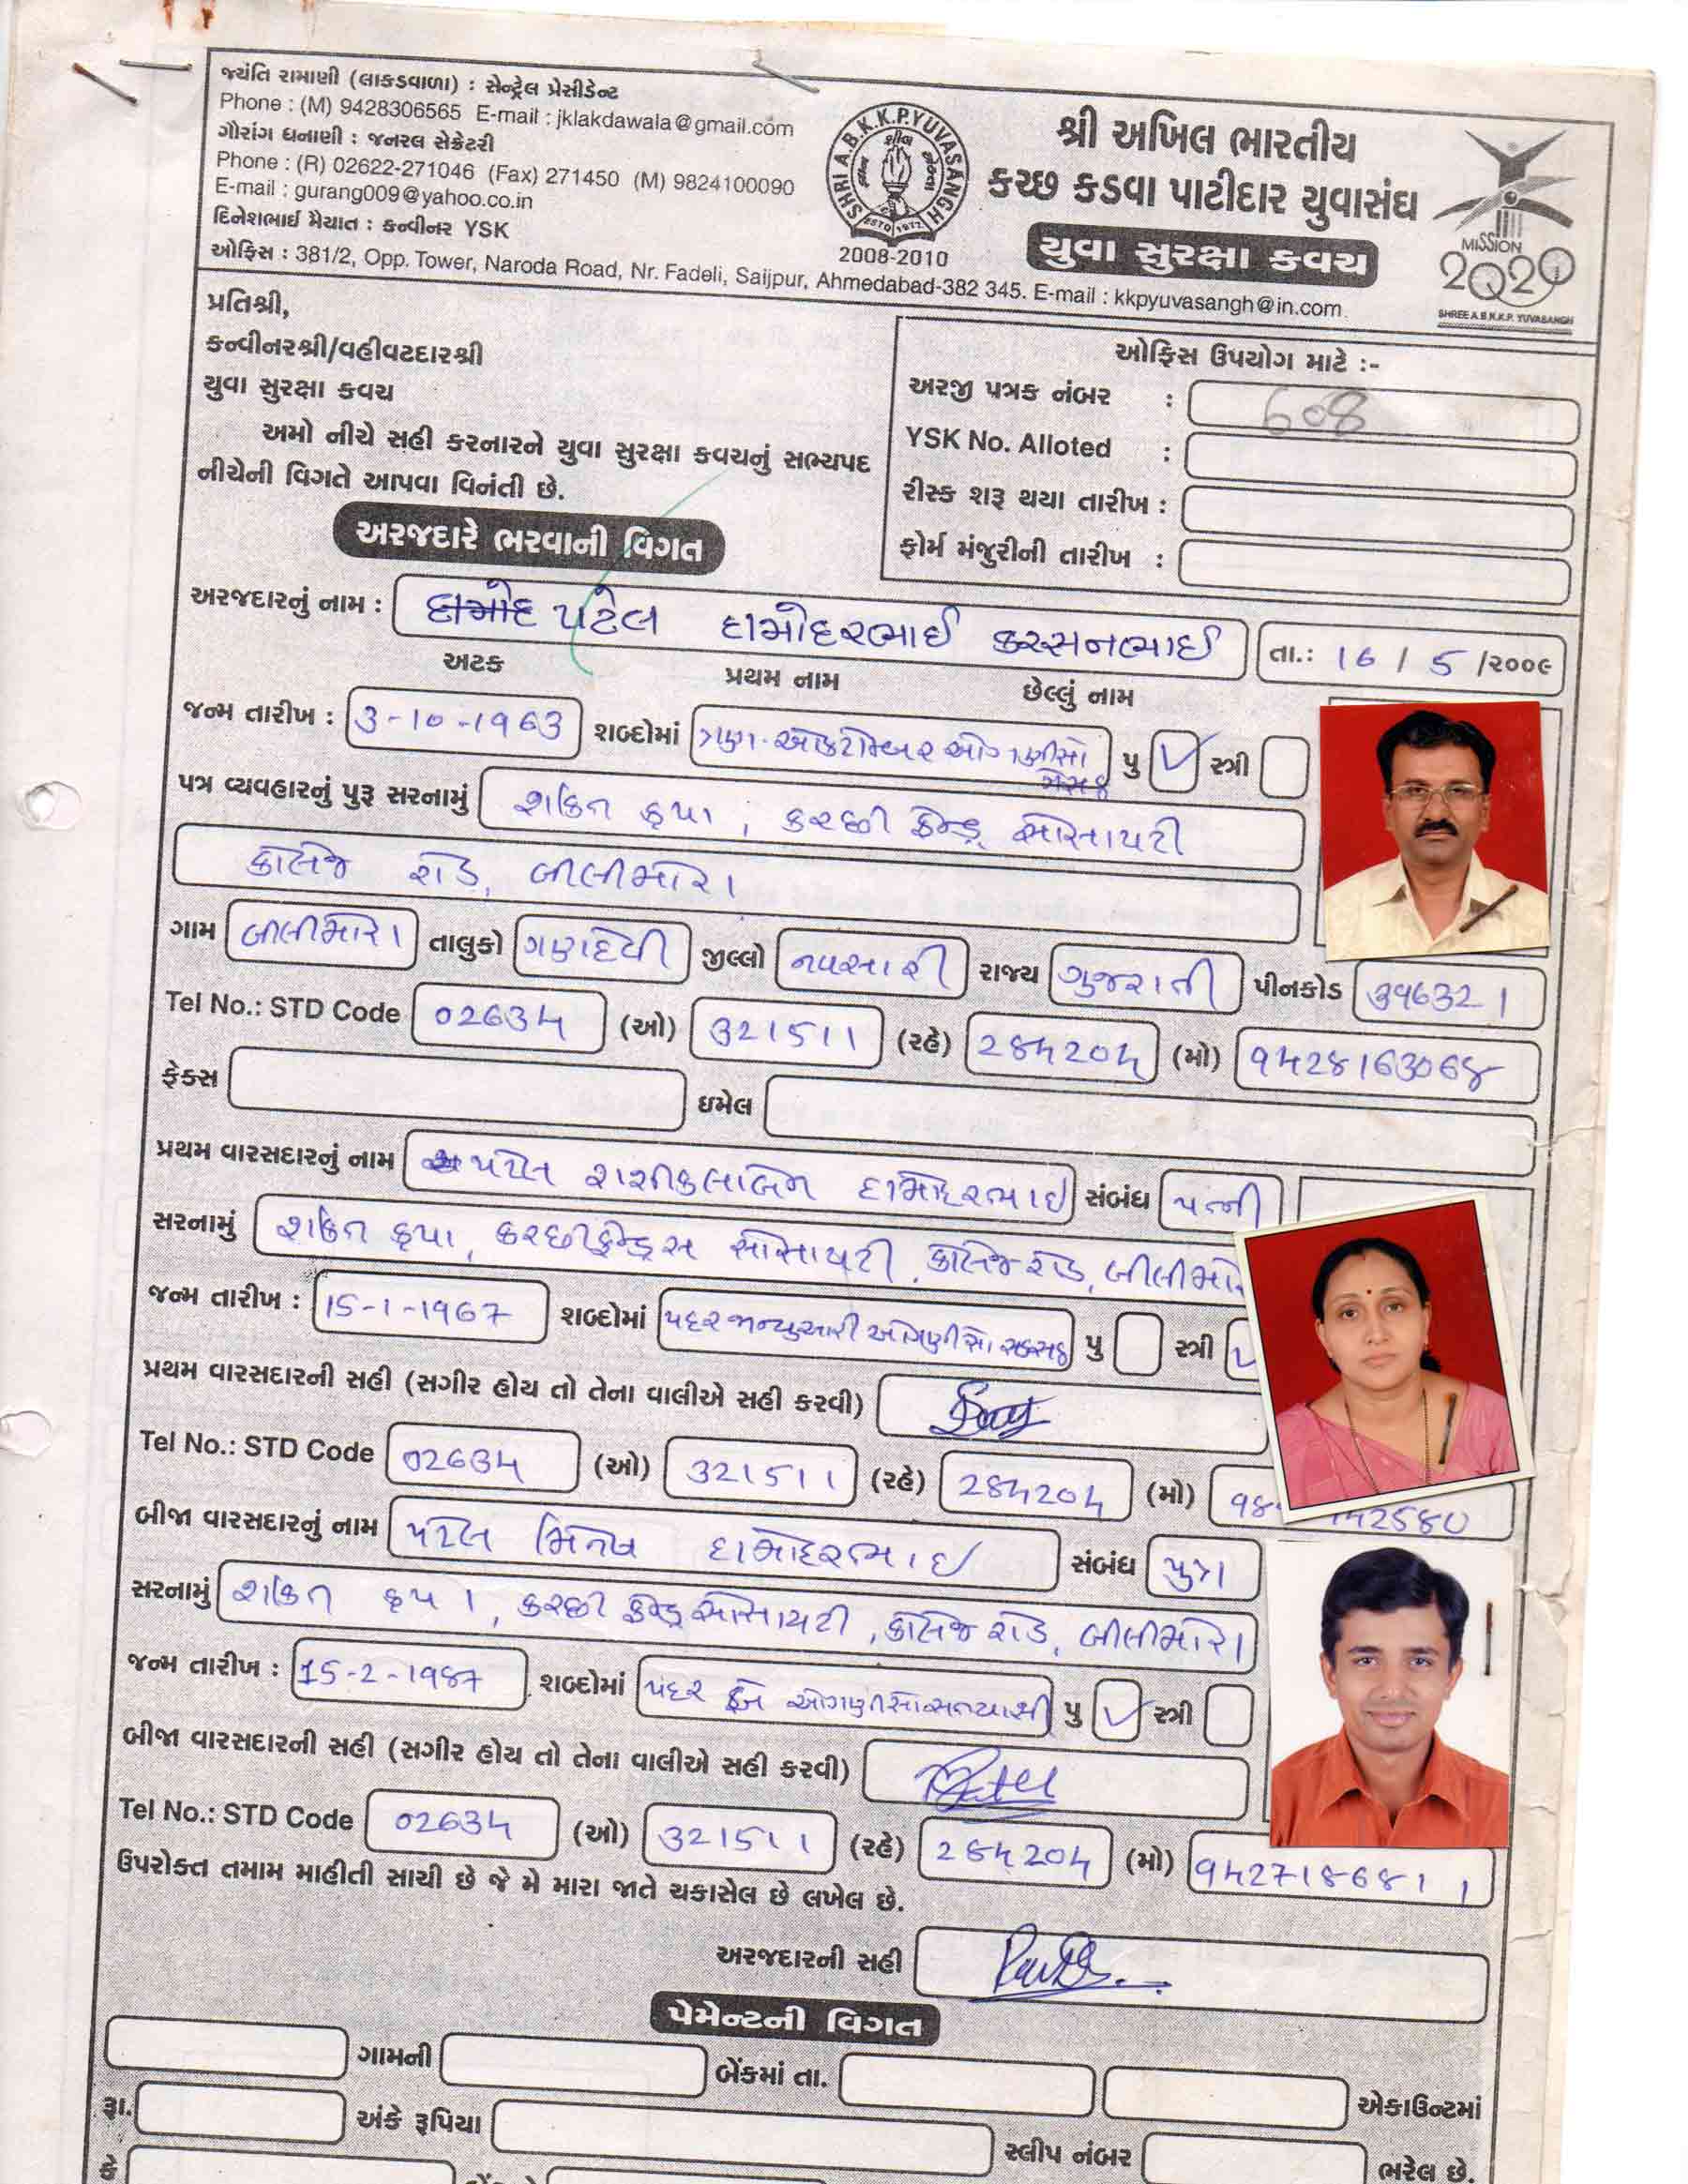 જયંતિ રામાણી (લાકડાવાળા) : સેન્ટ્રલ પ્રેસીડેન્ટ
Phone : (M) 9428306565 E-mail : jklakdawala@gmail.com
ગૌરાંગ ધનાણી : જનરલ સેક્રેટરી
Phone : (R) 02622-271046 (Fax) 271450 (M) 9824100090
E-mail : gurang009@yahoo.co.in
દિનેશભાઈ મૈયાત : કન્વીનર YSK
ઓફિસ : 381/2, Opp. Tower, Naroda Road, Nr. Fadeli, Saijpur, Ahmedabad-382 345. E-mail : kkpyuvasangh@in.com
SHRI A.B.K.K.P. YUVASANGH
ESTD 1977
2008-2010
શ્રી અખિલ ભારતીય
કચ્છ કડવા પાટીદાર યુવાસંઘ
યુવા સુરક્ષા કવચ
MISSION
2020
SHREE A.B.K.K.P. YUVASANGH
પ્રતિશ્રી,
કન્વીનરશ્રી/વહીવટદારશ્રી
યુવા સુરક્ષા કવચ
અમો નીચે સહી કરનારને યુવા સુરક્ષા કવચનું સભ્યપદ
નીચેની વિગતે આપવા વિનંતી છે.
ઓફિસ ઉપયોગ માટે :-
અરજી પત્રક નંબર : 608
YSK No. Alloted :
રીસ્ક શરૂ થયા તારીખ :
ફોર્મ મંજુરીની તારીખ :
અરજદારે ભરવાની વિગત
અરજદારનું નામ : પટેલ દામોદરભાઈ કરસનભાઈ તા.: 16 / 5 /૨૦૦૯
અટક પ્રથમ નામ છેલ્લું નામ
જન્મ તારીખ : 3-10-1963 શબ્દોમાં ત્રણ-ઓક્ટોમ્બર ઓગણીસો ત્રેસઠ પુ ✓ સ્ત્રી
પત્ર વ્યવહારનું પુરૂ સરનામું શક્તિ કૃપા, કચ્છી ફ્રેન્ડ્સ સોસાયટી
કોલેજ રોડ, બીલીમોરા
ગામ બીલીમોરા તાલુકો ગણદેવી જીલ્લો નવસારી રાજ્ય ગુજરાતી પીનકોડ 396321
Tel No.: STD Code 02634 (ઓ) 321511 (રહે) 284204 (મો) 9428163068
ફેક્સ ઇમેલ
પ્રથમ વારસદારનું નામ પટેલ શશીકલાબેન દામોદરભાઇ સંબંધ પત્ની
સરનામું શક્તિ કૃપા, કચ્છી ફ્રેન્ડ્સ સોસાયટી, કોલેજ રોડ, બીલીમોરા
જન્મ તારીખ : 15-1-1967 શબ્દોમાં પંદર જાન્યુઆરી ઓગણીસો સડસઠ પુ સ્ત્રી ✓
પ્રથમ વારસદારની સહી (સગીર હોય તો તેના વાલીએ સહી કરવી)
Tel No.: STD Code 02634 (ઓ) 321511 (રહે) 284204 (મો)
બીજા વારસદારનું નામ પટેલ દામોદરભાઇ સંબંધ પુત્ર
સરનામું શક્તિ કૃપા, કચ્છી ફ્રેન્ડ્સ સોસાયટી, કોલેજ રોડ, બીલીમોરા
જન્મ તારીખ : 15-2-1987 શબ્દોમાં પંદર ઓગણીસો સત્યાશી પુ ✓ સ્ત્રી
બીજા વારસદારની સહી (સગીર હોય તો તેના વાલીએ સહી કરવી)
Tel No.: STD Code 02634 (ઓ) 321511 (રહે) 284204 (મો) 9427186811
ઉપરોક્ત તમામ માહીતી સાચી છે જે મે મારા જાતે ચકાસેલ છે લખેલ છે.
અરજદારની સહી
પેમેન્ટની વિગત
ગામની બેંકમાં તા. એકાઉન્ટમાં
રૂા. અંકે રૂપિયા સ્લીપ નંબર ભરેલ છે.
કે